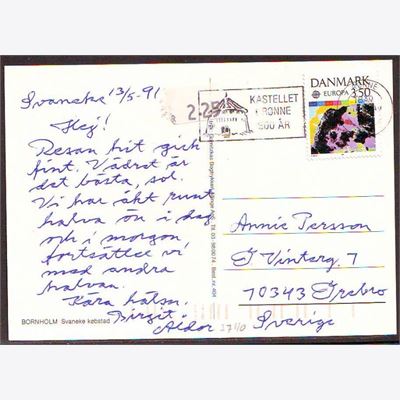 Svaneke 13/5-91
Hej!
Resan hit gick
fint. Vädret är
det bästa, sol.
Vi har åkt runt
halva ön i dag
och i morgon
fortsätter vi
med andra
halvan.
Kära häls.
Birgit.
Aldor
BORNHOLM Svaneke købstad
2.25
KASTELLET
RØNNE
300 ÅR
DANMARK
EUROPA 3.50
Annie Persson
G Vinterg. 7
70343 Örebro
Sverige